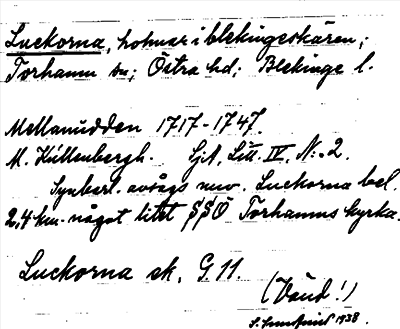 Luckorna, holmar i blekingeskären;
Torhamn sn; Östra hd; Blekinge l.
Mellanudden 1717-1747.
M. Küllenbergh. Litt. IV, N:o 2.
Synbarl. avsågs nuv. Luckorna bel.
2,4 km. något litet SSÖ Torhamns kyrka.
Luckorna sk. G. 11.
(Vänd!)
1938.